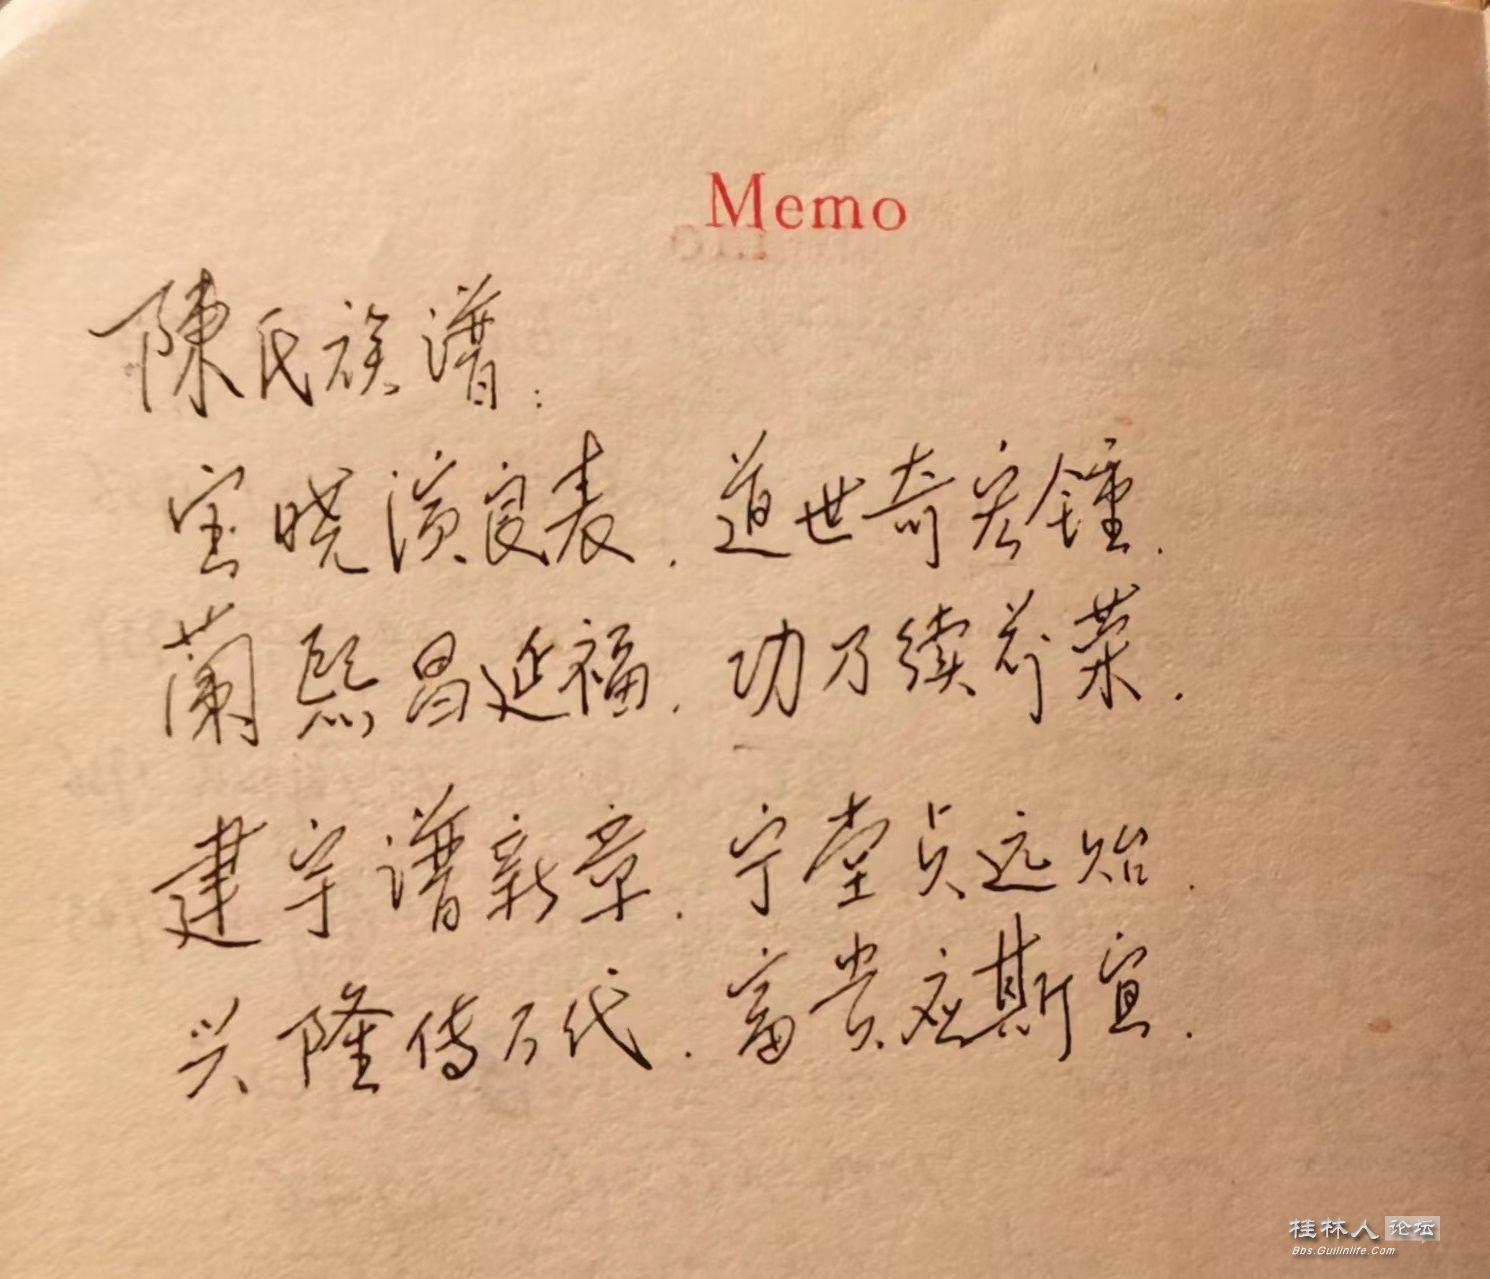 Memo
陳氏族谱:
宝晓演良表.道世奇宏鍾.
蘭熙昌延福.功乃续前荣.
建宇谱新章.宁堂贞远贻.
兴隆传万代.富贵应斯宜.
桂林人论坛
Bbs.Guilinlife.Com